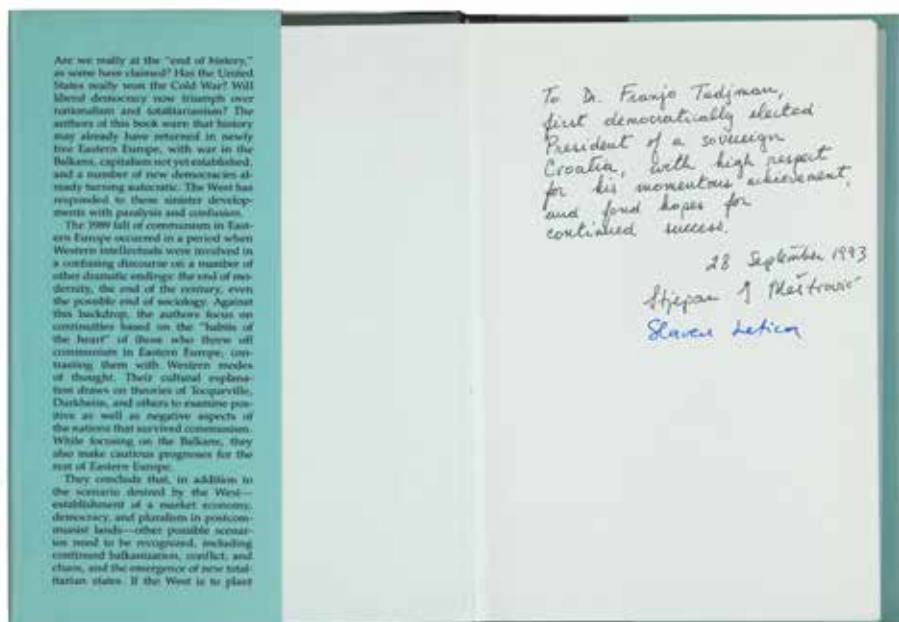 Are we really at the "end of history,"
as some have claimed? Has the United
States really won the Cold War? Will
liberal democracy now triumph over
nationalism and totalitarianism? The
authors of this book warn that history
may already have returned in newly
free Eastern Europe, with war in the
Balkans, capitalism not yet established,
and a number of new democracies al-
ready turning autocratic. The West has
responded to these sinister develop-
ments with paralysis and confusion.
The 1989 fall of communism in East-
ern Europe occurred in a period when
Western intellectuals were involved in
a confusing discourse on a number of
other dramatic endings: the end of mo-
dernity, the end of the century, even
the possible end of sociology. Against
this backdrop, the authors focus on
continuities based on the "habits of
the heart" of those who threw off
communism in Eastern Europe, con-
trasting them with Western modes
of thought. Their cultural explana-
tion draws on theories of Tocqueville,
Durkheim, and others to examine pos-
itive as well as negative aspects of
the nations that survived communism.
While focusing on the Balkans, they
also make cautious prognoses for the
rest of Eastern Europe.
They conclude that, in addition to
the scenario desired by the West—
establishment of a market economy,
democracy, and pluralism in postcom-
munist lands—other possible scenar-
ios need to be recognized, including
continued balkanization, conflict, and
chaos, and the emergence of new total-
itarian states. If the West is to plant
To Dr. Franjo Tudjman,
first democratically elected
President of a sovereign
Croatia, with high respect
for his momentous achievement,
and fond hopes for
continued success.
28 September 1993
Stjepan G Meštrović
Slaven Letica